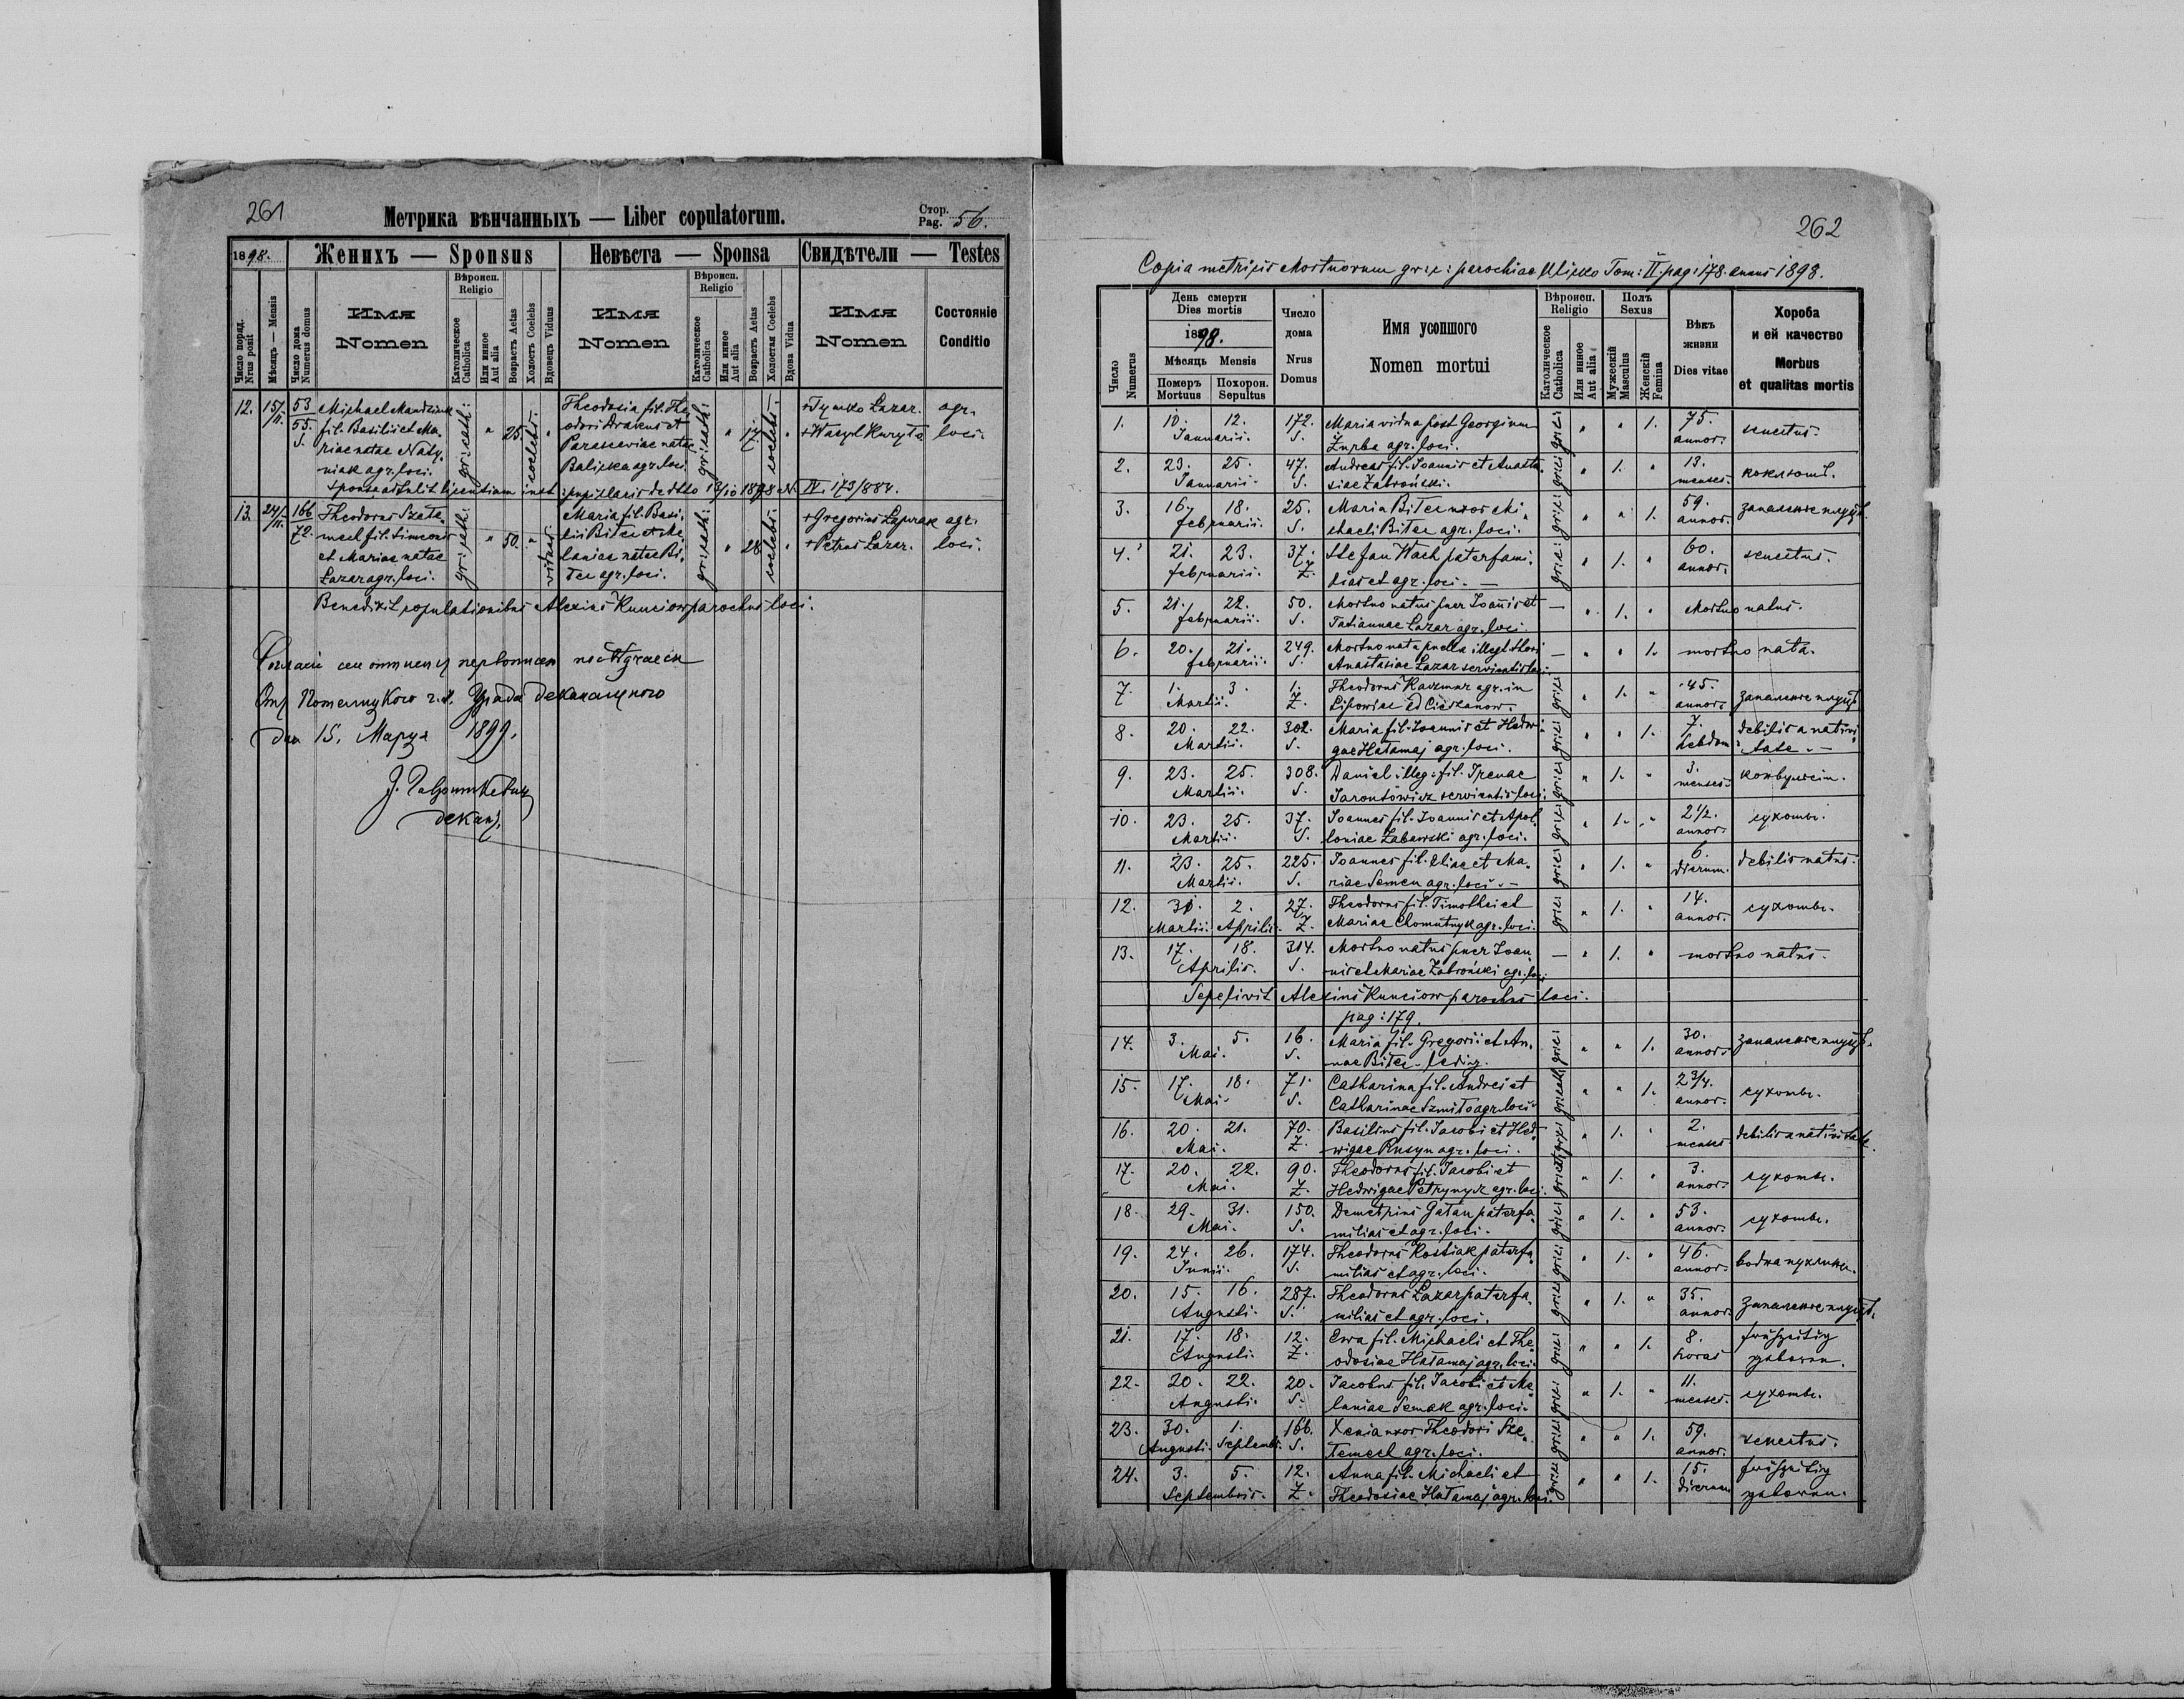 261
Метрика вѣнчанныхъ — Liber copulatorum.
Стор.
Pag. 56.
1898.
Женихъ — Sponsus
Невѣста — Sponsa
Свидѣтели — Testes
Число поряд.
Nrus posit
Мѣсяцъ — Mensis
Число дома
Numerus domus
Имя
Nomen
Вѣроисп.
Religio
Католическое
Catholica
Или инное
Aut alia
Возрастъ Aetas
Холостъ Coelebs
Вдовецъ Viduus
Имя
Nomen
Вѣроисп.
Religio
Католическое
Catholica
Или инное
Aut alia
Возрастъ Aetas
Холостая Coelebs
Вдова Vidua
Имя
Nomen
Состояніе
Conditio
12. 15/11. 53 Michael
55. fil. Basilii et Ma-
S. riae natae Naty-
niak agr. loci.
gr: cath: " 25. coelebs. "
Theodosia fil. The-
odori Drakus et
Parasceviae natae
Balicka agr. loci.
gr: cath: " 17. coelebs. "
+Tymko Lazar. agr.
+Wasyl Kuryta loci.
sponsa attulit licentiam inst: pupillaris de dtto 13/10 1898 N. IV. 173/884.
13. 24/11. 166 Theodorus Szeta-
72. mech fil. Simeonis
et Mariae natae
Lazar agr. loci.
gr: cath: " 50. " viduus.
Maria fil. Basi-
lii Bitec et Me-
laniae natae Bi-
tec agr. loci.
gr: cath: " 28. coelebs. "
+Gregorius agr.
+Petrus Lazar. loci.
Benedixit copulationibus Alexius Kunciow parochus loci.
дня 15. Марта 1899.
деканъ.
262
Copia metricis Mortuorum gr: c: parochiae Tom: II. pag: 178. annus 1898.
Число
Numerus
День смерти
Dies mortis
1898.
Мѣсяць Mensis
Померъ
Mortuus
Похорон.
Sepultus
Число
дома
Nrus
Domus
Имя усопшого
Nomen mortui
Вѣроисп.
Religio
Католическое
Catholica
Или инное
Aut alia
Полъ
Sexus
Мужескій
Masculius
Женскій
Femina
Вѣкъ
жизни
Dies vitae
Хороба
и ей качество
Morbus
et qualitas mortis
1. 10. 12. 172. Maria vidua post Georgium gr:c: " " 1. 75. senectus.
Januarii. S. Żurba agr. loci. annor.
2. 23. 25. 47. Andreas fil. Joannis et Anasta- gr:c: " 1. " 13. коклюшъ.
Januarii. S. siae Zabroński. menses.
3. 16. 18. 25. Maria Bitec uxor Mi- gr:c: " " 1. 59. запаленіе
februarii. S. chaeli Bitec agr. loci. annor.
4. 21. 23. 37. Stefan Wach paterfami- gr:c: " 1. " 60. senectus.
februarii. Z. lias et agr. loci. — annor.
5. 21. 22. 50. Mortuo natus puer Joannis et — " 1. " Mortuo natus.
februarii. S. Tatiannae Lazar agr. loci.
6. 20. 21. 249. Mortuo nata puella illegit thori — " " 1. mortuo nata.
februarii. S. Anastasiae Lazar servientis loci.
7. 1. 3. 1. Theodorus agr. in gr:c: " 1. " 45. запаленіе
Martii. Z. Lipowiec ad Cieszanow. annor.
8. 20. 22. 302. Maria fil. Joannis et Hedwi- gr:c: " " 1. 7. debilis a nativi-
Martii. S. gae Hatamaj agr. loci. hebdom. tate. —
9. 23. 25. 308. Daniel illeg: fil. Irenae gr:c: " 1. " 3.
Martii. S. Jarontowicz servientis loci. menses.
10. 23. 25. 37. Joannes fil. Joannis et Apol- gr:c: " 1. " 2 1/2. сухоты.
Martii. S. loniae Zabawski agr. loci. annor.
11. 23. 25. 225. Joannes fil. Eliae et Ma- gr:c: " 1. " 6. debilis natus.
Martii. S. riae Semen agr. loci. — dierum.
12. 31. 2. 27. Theodorus fil. Timothei et gr:c: " 1. " 14. сухоты.
Martii. Aprilis. Z. Mariae Chomutnyk agr. loci. annor.
13. 17. 18. 314. Mortuo natus puer Joan- — " 1. " mortuo natus.
Aprilis. S. nis et Mariae Zabroński agr. loci.
Sepelivit Alexius Kunciow parochus loci.
pag: 179.
14. 3. 5. 16. Maria fil. Gregorii et An- gr:c: " " 1. 30. запаленіе
Mai. S. nae Bitec. ledig. annor.
15. 17. 18. 71. Catharina fil. Andrei et gr:cath: " " 1. 2 3/4. сухоты.
Mai. S. Catharinae Szmiło agr. loci. annor.
16. 20. 21. 70. Basilius fil. Jacobi et Hed- gr:c: " 1. " 2. debilis a nativitate.
Mai. Z. wigae Rusyn agr. loci. menses
17. 20. 22. 90. Theodorus fil. Jacobi et gr:cath: " 1. " 3. сухоты.
Mai. Z. Hedwigae Petrynycz agr. loci. annor.
18. 29. 31. 150. Demetrius Gatan paterfa- gr:c: " 1. " 53. сухоты.
Mai. S. milias et agr. loci. annor.
19. 24. 26. 174. Theodorus Kostiak paterfa- gr:c: " 1. " 46. водна пухлина.
Junii. S. milias et agr. loci. annor.
20. 15. 16. 287. Theodorus Lazar paterfa- gr:c: " 1. " 35. запаленіе
Augusti. S. milias et agr. loci. annor.
21. 17. 18. 12. Ewa fil. Michaeli et The- gr:c: " " 1. 8. frühzeitig
Augusti. Z. odosiae Hatamaj agr. loci. horas geboren.
22. 20. 22. 20. Jacobus fil. Jacobi et Me- gr:c: " 1. " 11. сухоты.
Augusti. S. laniae Semak agr. loci. menses.
23. 30. 1. 166. Xenia uxor Theodori Sze- gr:c: " " 1. 59. senectus.
Augusti. Septembr. S. temech agr. loci. annor.
24. 3. 5. 12. Anna fil. Michaeli et gr:c: " " 1. 15. frühzeitig
Septembris. Z. Theodosiae Hatamaj agr. loci. dierum geboren.